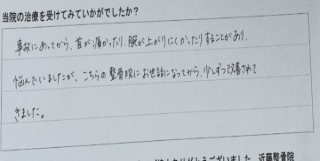 当院の治療を受けてみていかがでしたか?
事故にあってから、首が痛かったり、腕が上がりにくかったりすることがあり、
悩んでいましたが、こちらの整骨院にお世話になってから、少しずつ改善されて
きました。
ありがとうございました 近藤整骨院